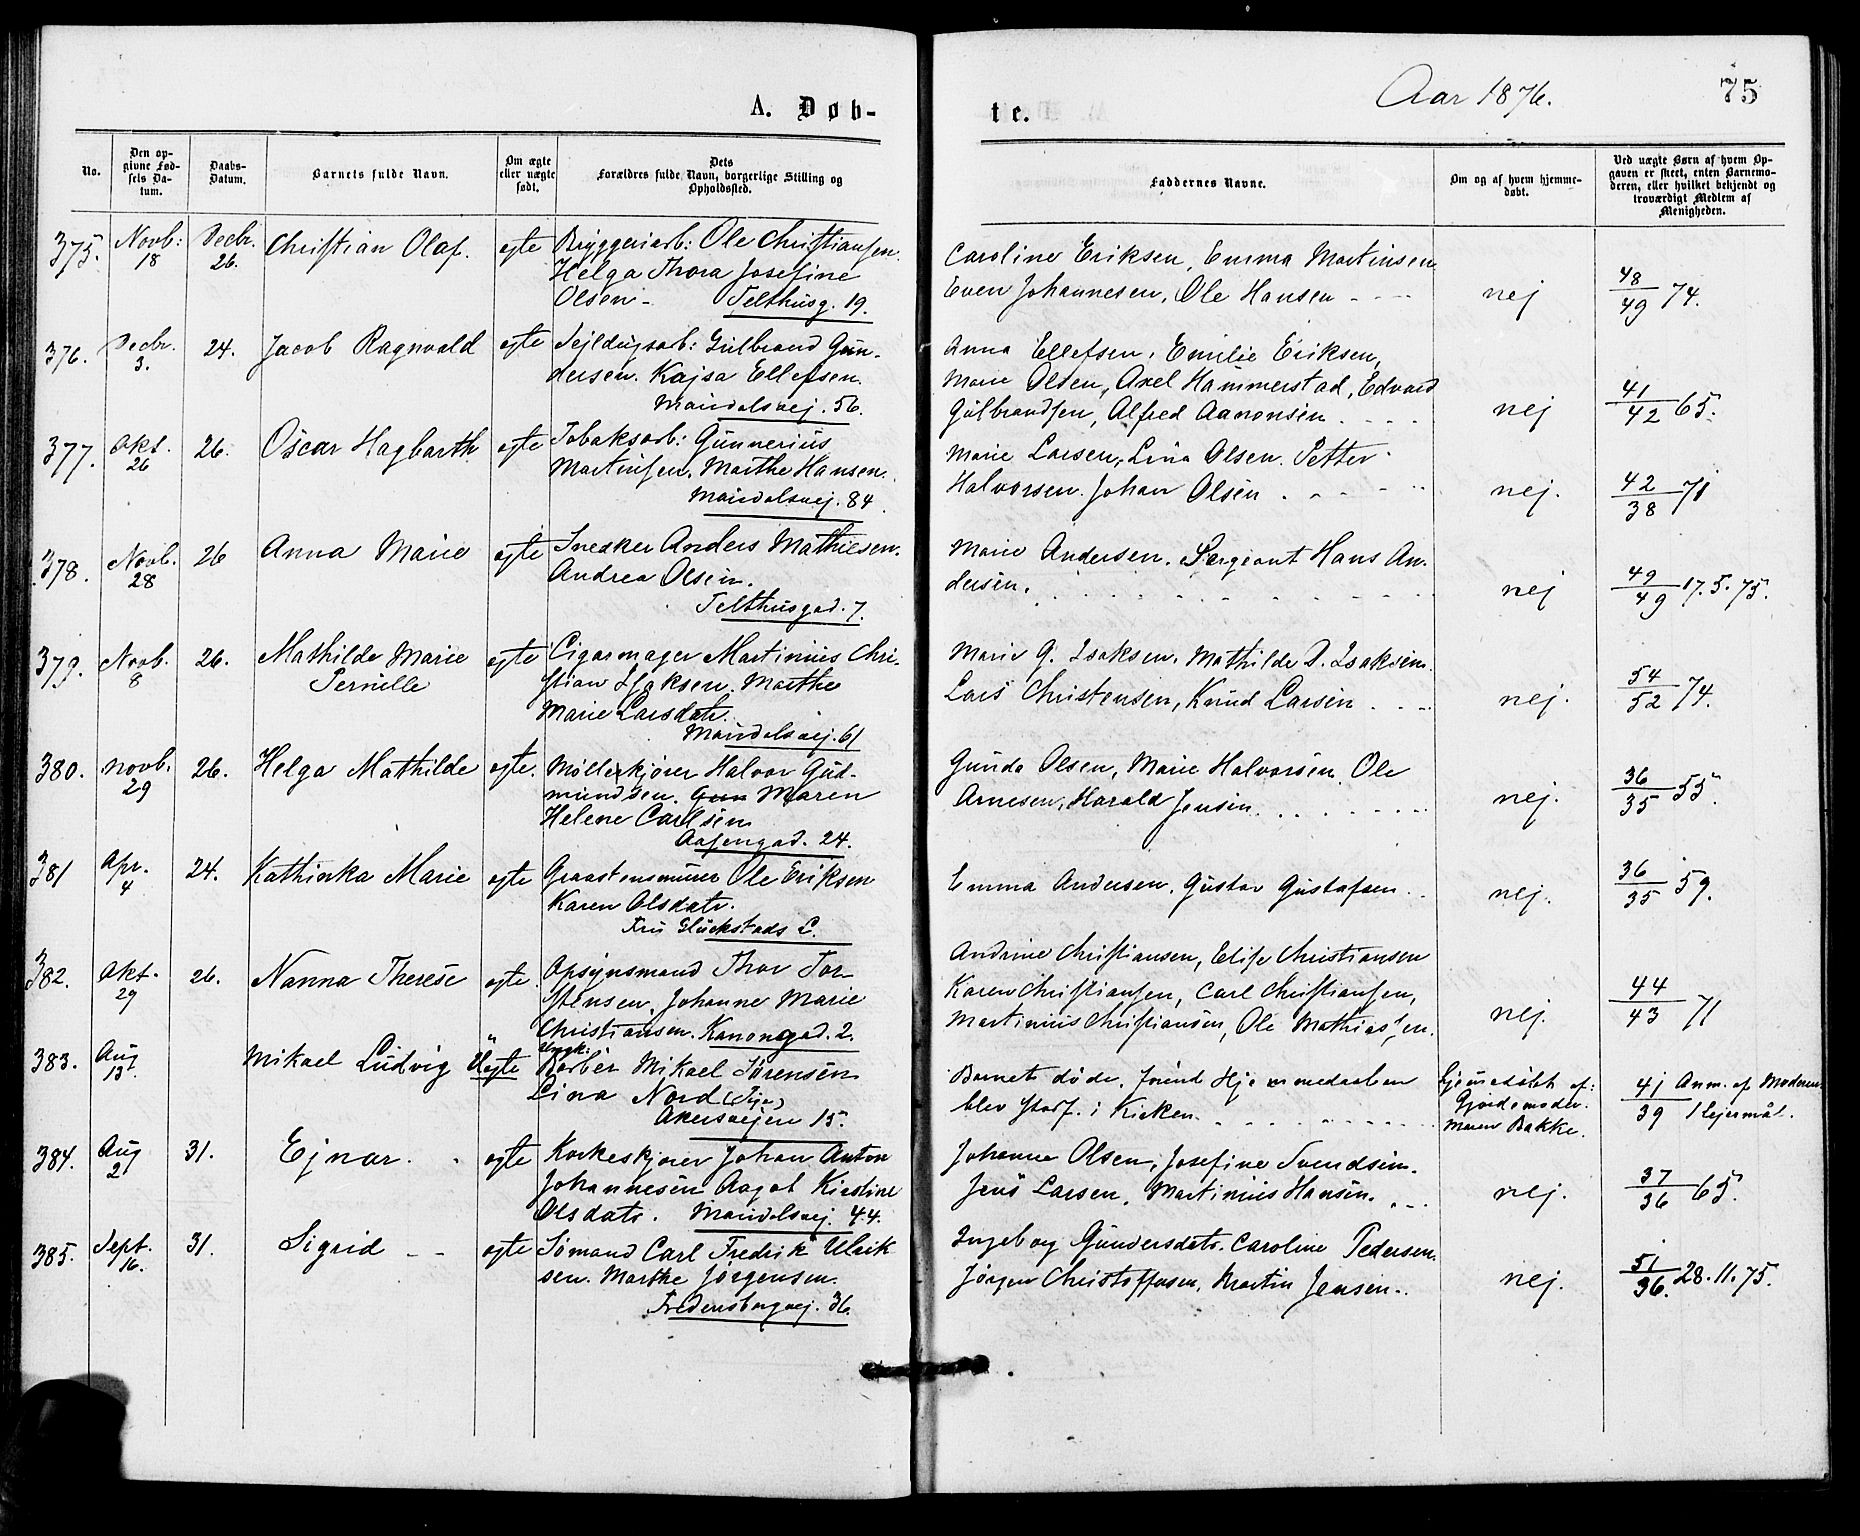 A. Døb-
te.
Aar 1876.
75
No.
Den op-
givne Fød-
sels Da-
tum.
Daabs-
Datum.
Barnets fulde Navn.
Om ægte
eller uægte
født.
Dets
Forældres fulde Navn, borgerlige Stilling og
Opholdssted.
Faddernes Navne.
Om og af hvem hjemme-
døbt.
Ved uægte Børn af hvem Op-
gaven er skeet, enten Barnemo-
deren, eller hvilket bekjendt og
troværdigt Medlem af
Menigheden.
375. Novb: 18 Decbr. 26. Christian Olaf. egte Bryggeriarb: Ole Christiansen.
Helga Thora Josefine
Olsen - Telthusg. 19.
Caroline Eriksen, Emma Martinsen
Even Johannesen, Ole Hansen - - -
nej
48/49 74.
376. Decbr. 3. 24. Jacob Ragnvald egte Sejldugsarb: Gulbrand Gun-
dersen. Kajsa Ellefsen.
Maridalsvej. 56.
Anna Ellefsen, Emilie Eriksen,
Marie Olsen, Axel Hammerstad, Edvard
Gulbrandsen, Alfred Aanonsen . . . .
nej
41/42 65.
377. Okt. 26 26. Oscar Hagbarth egte Tobaksarb: Gunnerius
Martinsen. Marthe Hansen.
Maridalsvej. 84.
Marie Larsen, Lina Olsen. Petter
Halvorsen. Johan Olsen . - - - -
nej.
42/38 71
378. Novb. 28 26 Anna Marie egte Snedker Anders Mathiesen.
Andrea Olsen.
Telthusgad. 7.
Marie Andersen. Sergeant Hans An-
dersen.
nej
49/49 17.5.75.
379. Novb. 8 26. Mathilde Marie
Pernille
egte Cigarmager Martinius Chri-
stian Isaksen. Marthe
Marie Larsdatr.
Maridalsvej. 61
Marie G. Isaksen. Mathilde D. Isaksen.
Lars Christensen, Knud Larsen . . - -
nej.
54/52 74.
380. Novb. 29 26. Helga Mathilde egte. Møllerkjører Halvor Gud-
mundsen. Gun Maren
Helene Carlsen
Aasengad. 24.
Gunda Olsen, Marie Halvorsen, Ole
Arnesen, Harald Jensen . . . . . .
nej.
36/35 55.
381 Apr. 4 24. Kathinka Marie egte Graastensmurer Ole Eriksen
Karen Olsdatr.
Fru Glückstads L.
Emma Andersen, Gustav Gustafsen . -
nej.
36/35 59.
382. Okt. 29 26. Nanna Therese egte. Opsynsmand Thor Tor-
stensen, Johanne Marie
Christiansen. Kanongad. 2.
Andrine Christiansen, Elise Christiansen
Karen Christiansen, Carl Christiansen,
Martinius Christiansen, Ole Mathiassen.
nej.
44/43 71
383. Aug 13. " Mikael Ludvig Uegte Ungk:
Barber Mikael Sørensen
Lina Nord (Pige)
Akersvejen 15.
Barnet døde. forind Hjemmedaaben
blev stadf. i Kirken.
hjemedøbt af:
Gjordemoder
Maren Bakke.
41/39 Anm. af Moderen.
1 lejermål.
384. Aug 2 31. Ejnar. . egte Korkeskjærer Johan Anton
Johannesen Aagot Kirstine
Olsdatr. Maridalsvej. 44.
Johanne Olsen, Josefine Svendsen.
Jens Larsen, Martinius Hansen. . - -
nej.
37/36 65.
385. Sept. 16. 31. Sigrid - - egte Sømand Carl Fredrik Ulrik
sen. Marthe Jørgensen.
Fredensborgvej. 36.
Ingeborg Gundersdatr. Caroline Pedersen.
Jørgen Christoffersen, Martin Jensen..
nej.
51/36. 28.11.75.